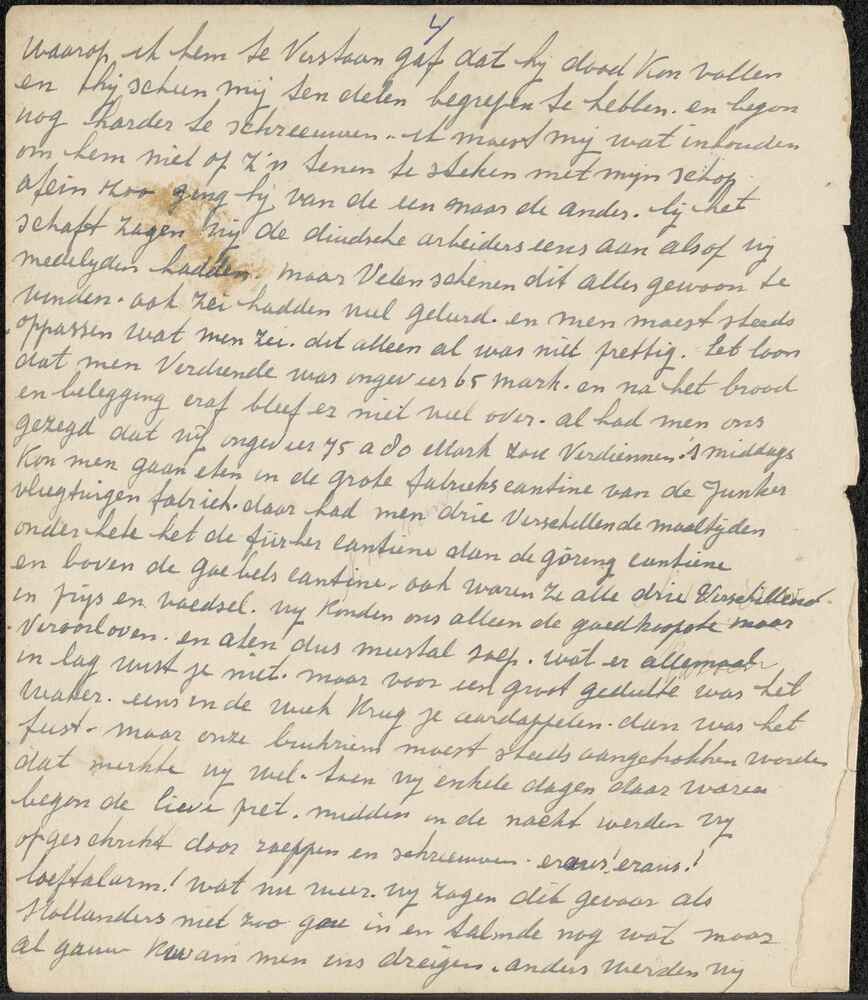 4
waarop ik hem te verstaan gaf dat hij dood kon vallen
en hij scheen mij ten delen begrepen te hebben. en begon
nog harder te schreeuwen. ik moest mij wat inhouden
om hem niet op z'n tenen te steken met mijn schop
afein zoo ging hij van de een naar de ander. bij het
schaft zagen wij de duidsche arbeiders eens aan alsof wij
medelyden hadden. maar velen schenen dit alles gewoon te
vinden. ook zei hadden veel geleerd. en men moest steeds
oppassen wat men zei. dit alleen al was niet prettig. het loon
dat men verdiende was ongeveer 65 mark. en na het brood
en belegging eraf bleef er niet veel over. al had men ons
gezegd dat wij ongeveer 75 a 80 Mark zou verdiennen. 's middags
kon men gaan eten in de grote fabrieks cantine van de Junker
vliegtuigen fabriek. daar had men drie verschillende maaltijden
onder hete het de fürher cantiene dan de göreng cantiene
en boven de goebels cantine. ook waren ze alle drie verschillend
in prijs en voedsel. wij konden ons alleen de goedkoopste maar
veroorloven. en aten dus meestal soep. wat er allemaal
in lag wist je niet. maar voor een groot gedeelte was het
water. eens in de week kreeg je aardappelen. dan was het
feest. maar onze buikriem moest steeds aangetrokken worden
dat merkte wij wel. toen wij enkele dagen daar waren
begon de lieve pret. midden in de nacht werden wij
opgeschrikt door roeppen en schreeuwen. eraus! eraus!
loeftalarm! wat nu weer. wij zagen dit gevaar als
Hollanders niet zoo gau in en talmde nog wat maar
al gauw kwam men ons dreigen. anders werden wij